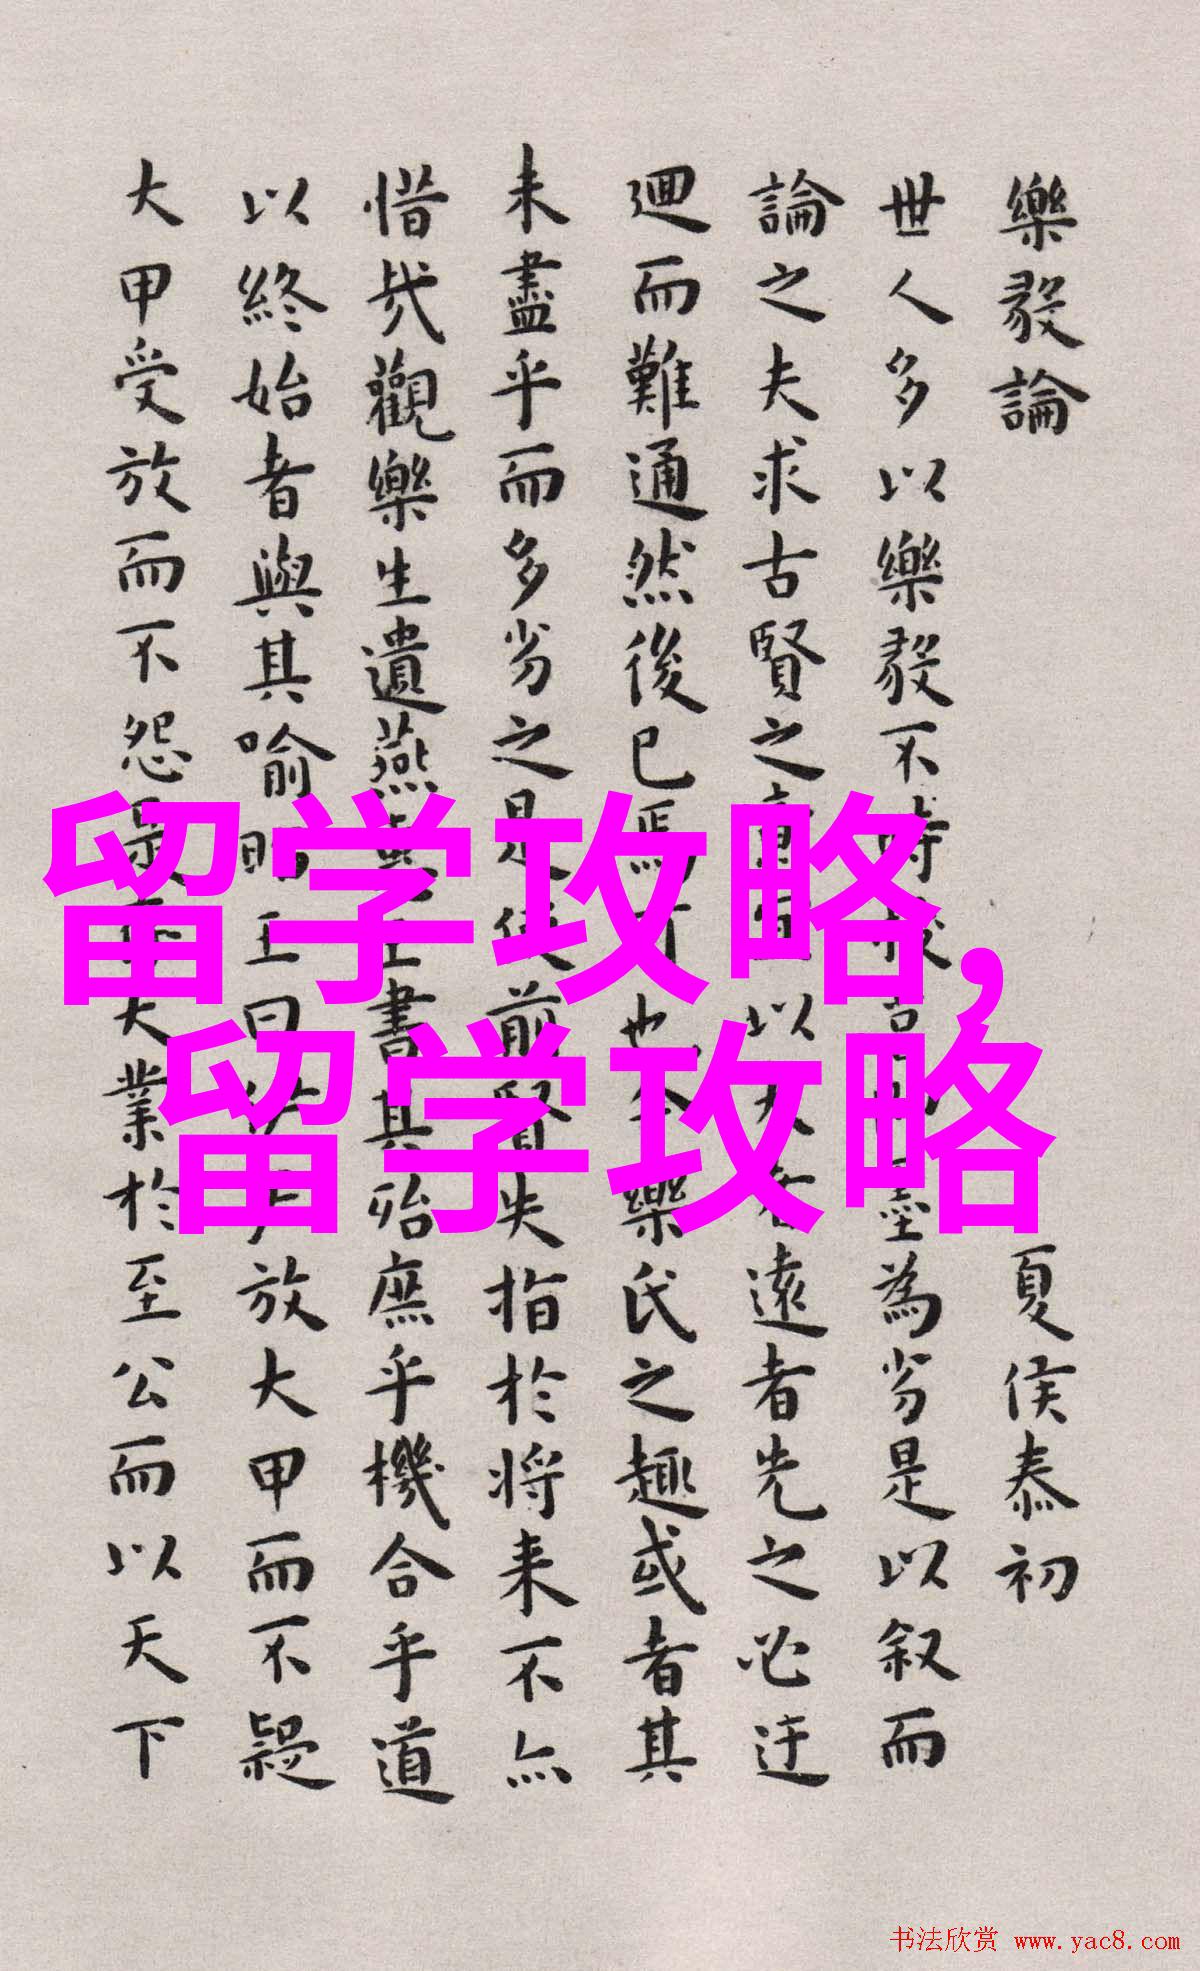 樂毅論
夏侯泰初
世人多以樂毅不時拔為劣是以叙而
論之夫求古賢之以大者遠者先之必迂
迴而難通然後已焉可也今樂氏之趣或者其
未盡乎而多劣之是使前賢失指於將来不亦
惜哉觀樂生遺燕惠王書其殆庶乎機合乎道
以終始者與其喻昭王曰伊尹放大甲而不疑
大甲受放而不怨是存大業於至公而以天下
留学攻略,
留学攻略
书法欣赏 www.yac8.com